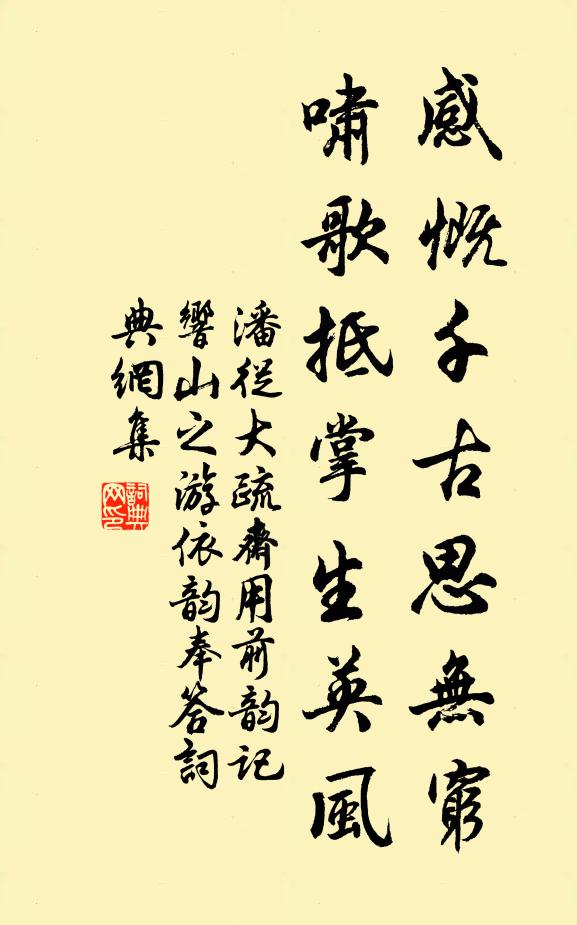 感慨千古思無窮
嘯歌抵掌生英風
潘從大疏齋用前韵記
響山之游依韵奉答詞
典網集
詞典網印